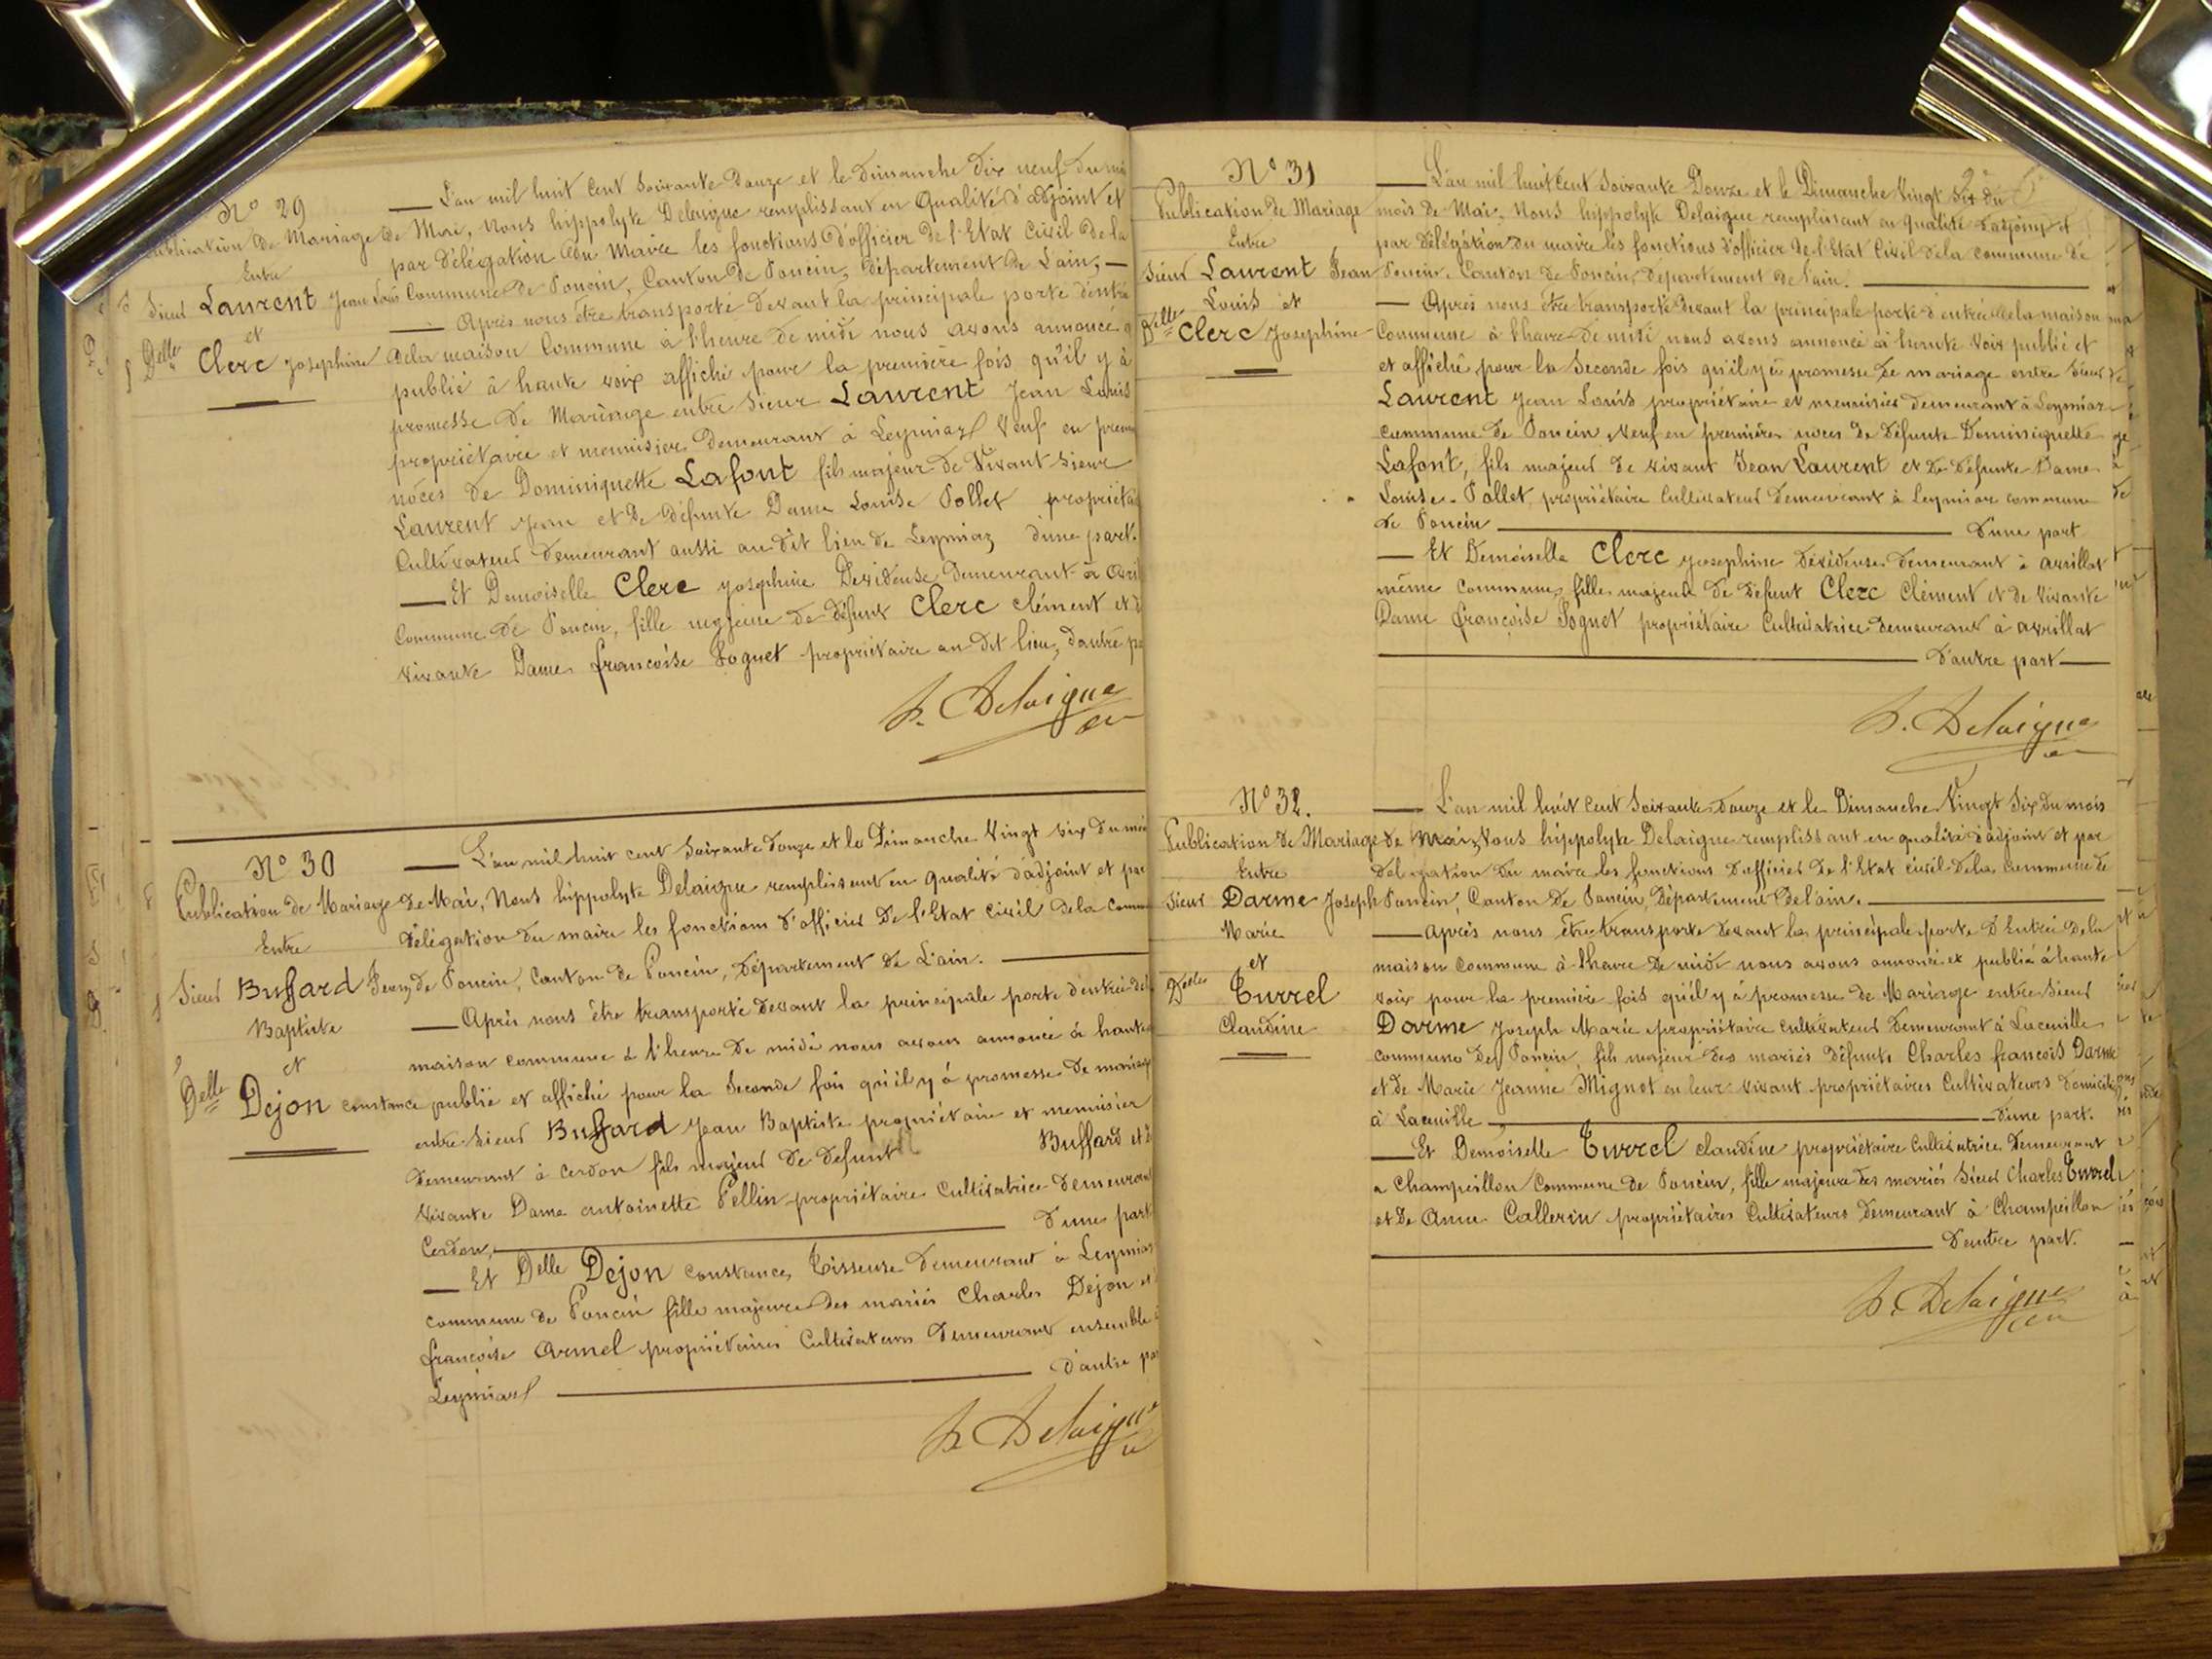 Nº 29
Publication de Mariage
Entre
Sieur Laurent Jean Louis
et
Delle Clerc Josephine
L'an mil huit Cent Soixante Douze et le Dimanche Dix neuf du
de Mai, Nous hippolyte Delaigue remplissant en Qualité d'adjoint et
par délégation du Maire les fonctions d'officier de l'Etat Civil de la
Commune de Poncin, Canton de Poncin, Département de L'ain,
Après nous être transporté devant la principale porte d'entré
de la maison Commune à l'heure de midi nous avons annoncé
publié à haute voix affiché pour la première fois qu'il y à
promesse de Mariage entre Sieur Laurent Jean Louis
propriétaire et menuisier Demeurant à Leymiaz Veuf en
nôces de Dominiquette Lafont fils majeur de Vivant Sieur
Laurent Jean et de défunte Dame Louise Pollet
Cultivateur demeurant aussi au dit lieu de Leymiaz d'une part.
Et Demoiselle Clerc Josephine Dévideuse demeurant à
Commune de Poncin, fille majeure de défunt Clerc Clément et
vivante Dame françoise Soguet propriétaire au dit lieu, d'autre
h. Delaigue
Nº 30
Publication de Mariage
Entre
Sieur Buffard Jean
Baptiste
et
Delle Dejon constance
L'an mil huit cent Soixante douze et le Dimanche Vingt six du
de Mai, Nous hippolyte Delaigue remplissant en qualité d'adjoint et par
délégation du maire les fonctions d'officier de l'Etat civil de la
de Poncin, Canton de Poncin, Département de L'ain.
Après nous être transporté devant la principale porte d'entrée
maison commune à l'heure de midi nous avons annoncé à haute
publié et affiché pour la Seconde fois qu'il y à promesse de
entre Sieur Buffard Jean Baptiste propriétaire et menuisier
demeurant à Cerdon fils majeur de defunt Buffard et
vivante Dame antoinette Pellin propriétaire Cultivatrice
Cerdon, d'une part
Et Delle Dejon constance, Tisseuse demeurant à Leymiaz
commune de Poncin fille majeure des mariés Charles Dejon et
françoise Armel propriétaires Cultivateurs Demeurant ensemble
Leymiaz d'autre
h. Delaigue
Nº 31
Publication de Mariage
Entre
Sieur Laurent Jean
Louis et
Delle Clerc Josephine
L'an mil huit Cent Soixante Douze et le Dimanche Vingt Six du
mois de Mai, Nous hippolyte Delaigue remplissant en qualité d'adjoint et
par délégation du maire les fonctions d'officier de l'Etat Civil de la commune de
Poncin, Canton de Poncin, Département de l'ain.
Après nous être transporté devant la principale porte d'entrée de la maison
Commune à l'heure de midi nous avons annoncé à haute voix publié et
et affiché pour la Seconde fois qu'il y à promesse de mariage entre Sieur
Laurent Jean Louis propriétaire et menuisier demeurant à Leymiaz
commune de Poncin Veuf en premières noces de défunte Dominiquette
Lafont, fils majeur de vivant Jean Laurent et de défunte Dame
Louise Pollet, propriétaire Cultivateur demeurant à Leymiaz commune
de Poncin d'une part
Et Demoiselle Clerc Josephine dévideuse demeurant à avrillat
même commune, fille majeure de défunt Clerc Clément et de Vivante
Dame françoise Soguet propriétaire Cultivatrice demeurant à avrillat
d'autre part
h. Delaigue
Nº 32.
Publication de Mariage
Entre
Sieur Darme Joseph
Marie
et
Delle Turrel
Claudine
L'an mil huit cent Soixante douze et le Dimanche Vingt Six du mois
de Mai, Nous hippolyte Delaigue remplissant en qualité d'adjoint et par
délégation du maire les fonctions d'officier de l'Etat civil de la commune de
Poncin, Canton de Poncin, Département de l'ain.
après nous être transporté devant la principale porte d'Entrée de la
maison commune à l'heure de midi nous avons annoncé et publié à haute
voix pour la première fois qu'il y à promesse de Mariage entre Sieur
Darme Joseph Marie propriétaire cultivateur demeurant à
commune de Poncin, fils majeur des mariés défunts Charles françois Darme
et de Marie Jeanne Mignot en leur vivant propriétaires Cultivateurs
à d'une part.
Et Demoiselle Turrel claudine propriétaire Cultivatrice demeurant
a Champeillon Commune de Poncin, fille majeure des mariés Sieur Charles Turrel
et de Anne Callerin propriétaires Cultivateurs demeurant à Champeillon
D'autre part.
h. Delaigue